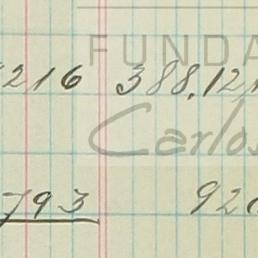 FUNDA
216 388,12
Carlos
793 92